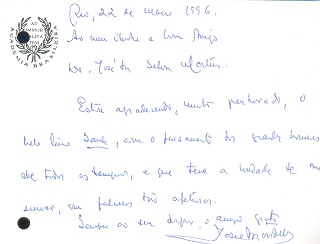 ACADEMIA BRASILEIRA
AD IMMORTALITATEM
Rio, 22 de maio 1996.
Ao meu e bom amigo
Dr. José da Silva Martins.
Estou agradecendo, muito penhorado, o
belo livro, com o pensamento dos grandes homens
de todos os tempos, e que teve a bondade de me
enviar, em palavras tão afetivas.
Sempre ao seu dispor, o amigo grato